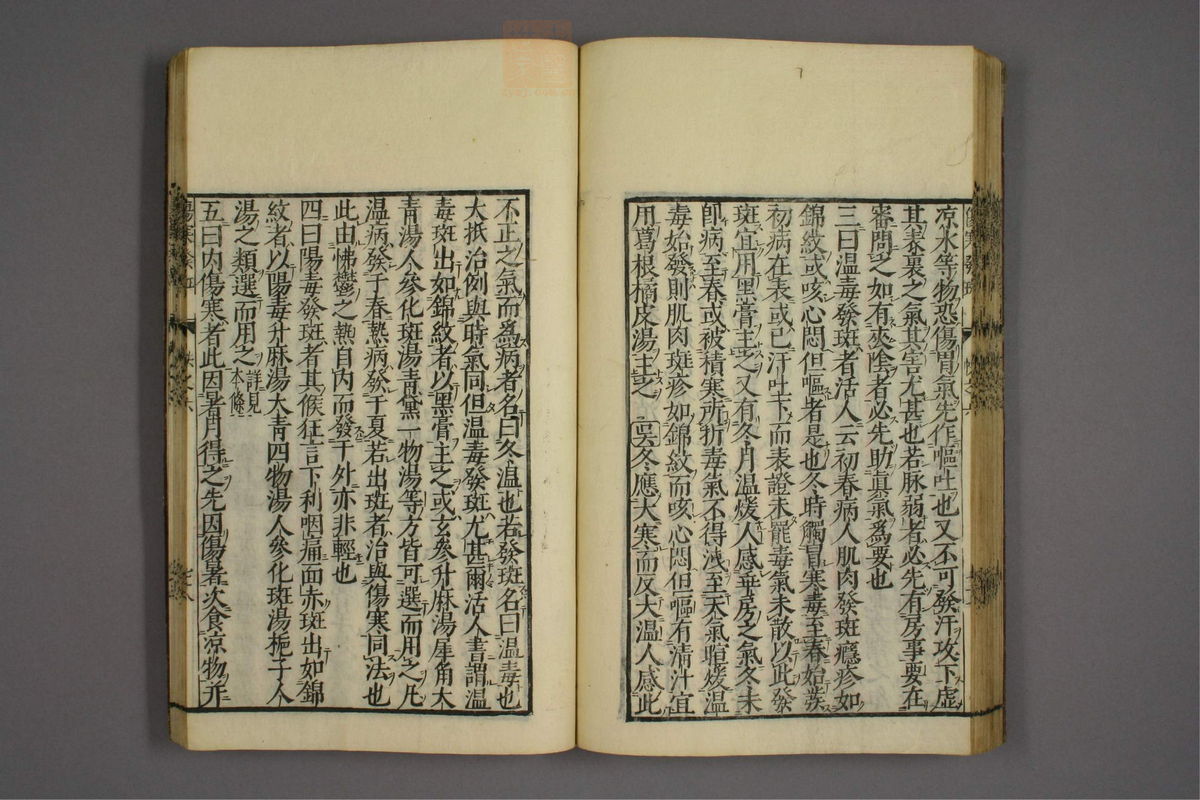 凉水等物恐傷胃氣先作嘔吐也又不可發汗攻下虛
其表裏之氣其害尤甚也若脉弱者必先有房事要在
審問之如有夾陰者必先助眞氣爲要也
三曰温毒發斑者活人云初春病人肌肉發斑癮疹如
錦紋或咳心悶但嘔者是也冬時觸冒寒毒至春始發
初病在表或已汗吐下而表證未罷毒氣未散以此發
斑宜用黑膏主之又有冬月温煖人感乖戾之氣冬未
即病至春或被積寒所折毒氣不得泄至天氣暄煖温
毒始發則肌肉斑疹如錦紋而咳心悶但嘔有清汁宜
用葛根橘皮湯主之 吳冬應大寒而反大温人感此
不正之氣而爲病者名曰冬温也若發斑名曰温毒也
大抵治例與時氣同但温毒發斑尤甚爾活人書謂温
毒斑出如錦紋者以黑膏主之或玄參升麻湯犀角大
青湯人參化斑湯青黛一物湯等方皆可選而用之凡
温病發于春熱病發于夏若出斑者治與傷寒同法也
此由怫鬱之熱自内而發于外亦非輕也
四曰陽毒發斑者其候狂言下利咽痛面赤斑出如錦
紋者以陽毒升麻湯大青四物湯人參化斑湯梔子人
湯之類選而用之詳見本條
五曰内傷寒者此因暑月得之先因傷暑次食凉物并